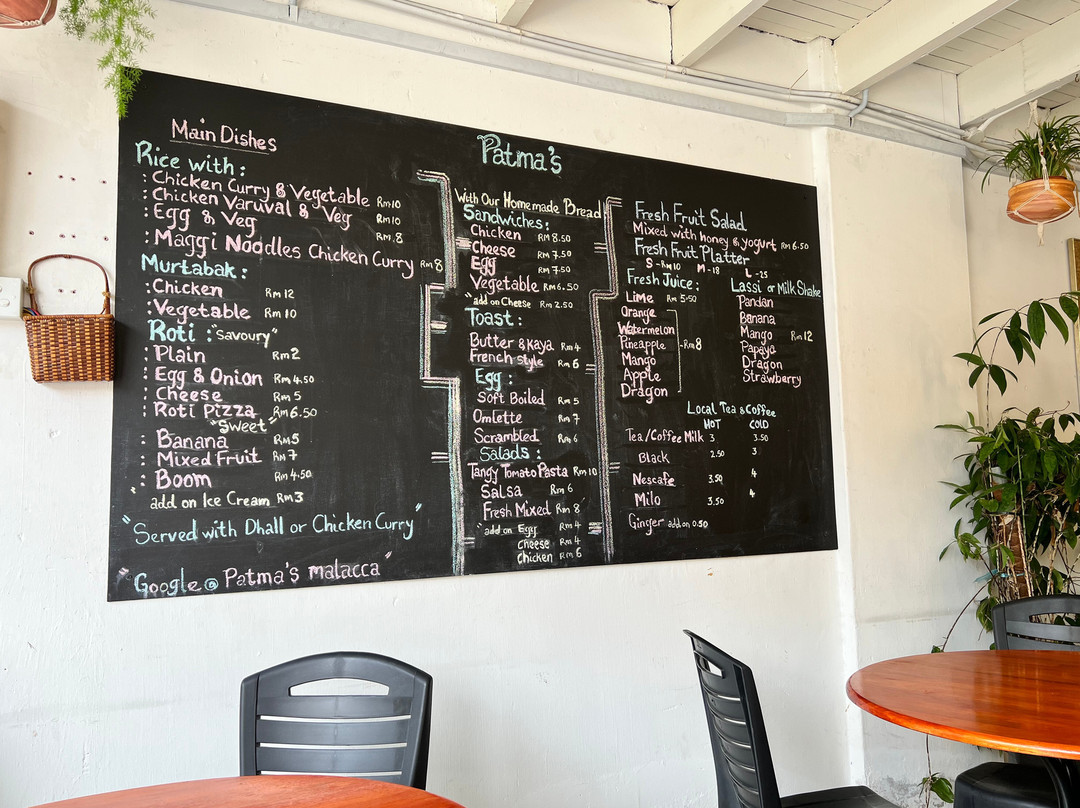 Patma's
Main Dishes
Rice with :
: Chicken Curry & Vegetable Rm10
: Chicken Varuval & Veg Rm10
: Egg & Veg Rm.8
: Maggi Noodles Chicken Curry Rm8
Murtabak :
: Chicken Rm 12
: Vegetable Rm 10
Roti : "Savoury"
: Plain Rm2
: Egg & Onion Rm 4.50
: Cheese Rm 5
: Roti Pizza Rm 6.50
"Sweet"
: Banana Rm5
: Mixed Fruit Rm 7
: Boom Rm 4.50
" add on Ice Cream Rm3
"Served with Dhall or Chicken Curry"
"Google @ Patma's malacca"
With Our Homemade Bread
Sandwiches :
Chicken RM 8.50
Cheese RM 7.50
Egg RM 7.50
Vegetable RM 6.50
"add on Cheese Rm 2.50
Toast :
Butter & Kaya Rm 4
French style Rm 6
Egg :
Soft Boiled Rm 5
Omlette Rm 7
Scrambled Rm 6
Salads :
Tangy Tomato Pasta Rm 10
Salsa Rm 6
Fresh Mixed Rm 8
"add on Egg Rm 4
Cheese Rm 4
Chicken Rm 6
Fresh Fruit Salad
Mixed with honey & yogurt RM 6.50
Fresh Fruit Platter
S - Rm10 M - 18 L - 25
Fresh Juice :
Lime Rm 5.50
Orange
Watermelon
Pineapple - Rm8
Mango
Apple
Dragon
Lassi or Milk Shake
Pandan
Banana
Mango Rm12
Papaya
Dragon
Strawberry
Local Tea & Coffee
HOT COLD
Tea/Coffee Milk 3. 3.50
Black 2.50 3
Nescafe 3.50 4
Milo 3.50 4
Ginger add on 0.50